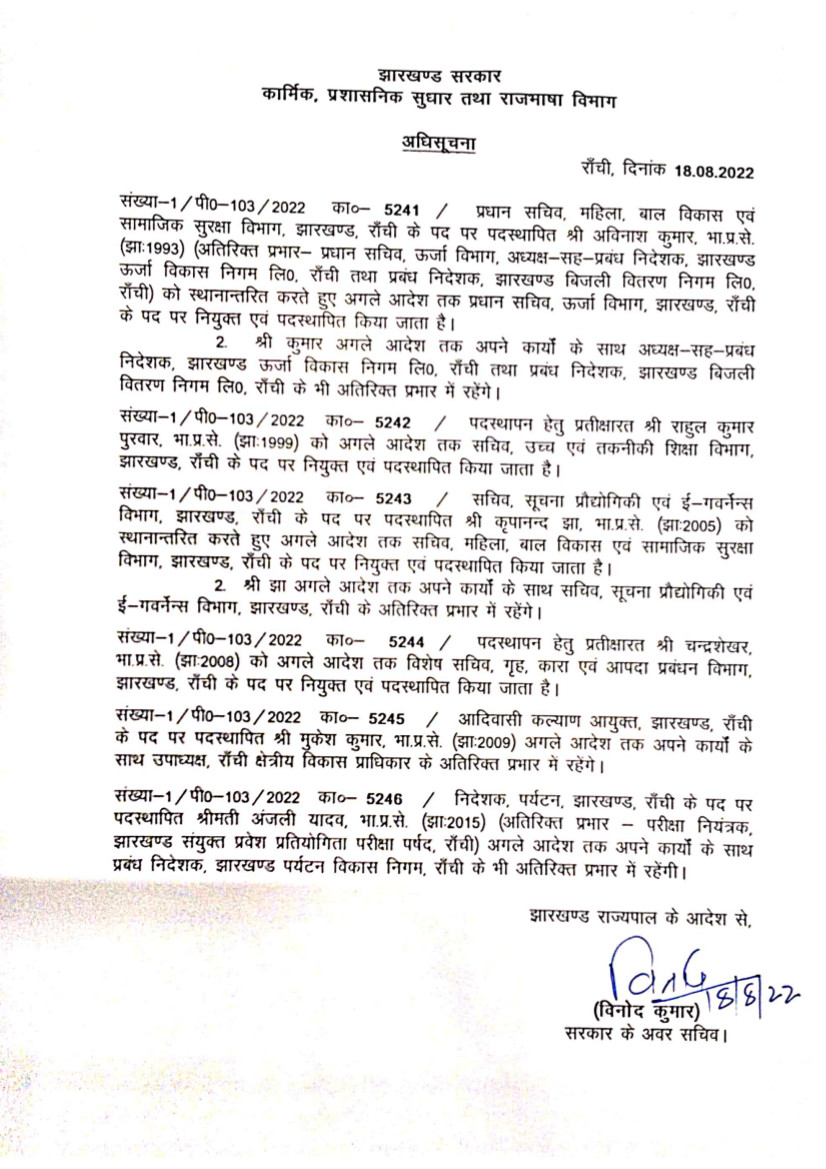 झारखण्ड सरकार
कार्मिक, प्रशासनिक सुधार तथा राजभाषा विभाग
अधिसूचना
राँची, दिनांक 18.08.2022
संख्या–1/पी0–103/2022 का०– 5241 / प्रधान सचिव, महिला, बाल विकास एवं
सामाजिक सुरक्षा विभाग, झारखण्ड, राँची के पद पर पदस्थापित श्री अविनाश कुमार, भा.प्र.से.
(झाः1993) (अतिरिक्त प्रभार– प्रधान सचिव, ऊर्जा विभाग, अध्यक्ष–सह–प्रबंध निदेशक, झारखण्ड
ऊर्जा विकास निगम लि0, राँची तथा प्रबंध निदेशक, झारखण्ड बिजली वितरण निगम लि0,
राँची) को स्थानान्तरित करते हुए अगले आदेश तक प्रधान सचिव, ऊर्जा विभाग, झारखण्ड, राँची
के पद पर नियुक्त एवं पदस्थापित किया जाता है।
2. श्री कुमार अगले आदेश तक अपने कार्यो के साथ अध्यक्ष–सह–प्रबंध
निदेशक, झारखण्ड ऊर्जा विकास निगम लि0, राँची तथा प्रबंध निदेशक, झारखण्ड बिजली
वितरण निगम लि0, राँची के भी अतिरिक्त प्रभार में रहेंगे।
संख्या–1/पी0–103/2022 का०– 5242 / पदस्थापन हेतु प्रतीक्षारत श्री राहुल कुमार
पुरवार, भा.प्र.से. (झाः1999) को अगले आदेश तक सचिव, उच्च एवं तकनीकी शिक्षा विभाग,
झारखण्ड, राँची के पद पर नियुक्त एवं पदस्थापित किया जाता है।
संख्या–1/पी0–103/2022 का०– 5243 / सचिव, सूचना प्रौद्योगिकी एवं ई–गवर्नेन्स
विभाग, झारखण्ड, राँची के पद पर पदस्थापित श्री कृपानन्द झा, भा.प्र.से. (झाः2005) को
स्थानान्तरित करते हुए अगले आदेश तक सचिव, महिला, बाल विकास एवं सामाजिक सुरक्षा
विभाग, झारखण्ड, राँची के पद पर नियुक्त एवं पदस्थापित किया जाता है।
2. श्री झा अगले आदेश तक अपने कार्यो के साथ सचिव, सूचना प्रौद्योगिकी एवं
ई–गवर्नेन्स विभाग, झारखण्ड, राँची के अतिरिक्त प्रभार में रहेंगे।
संख्या–1/पी0–103/2022 का०– 5244 / पदस्थापन हेतु प्रतीक्षारत श्री चन्द्रशेखर,
भा.प्र.से. (झाः2008) को अगले आदेश तक विशेष सचिव, गृह, कारा एवं आपदा प्रबंधन विभाग,
झारखण्ड, राँची के पद पर नियुक्त एवं पदस्थापित किया जाता है।
संख्या–1/पी0–103/2022 का०– 5245 / आदिवासी कल्याण आयुक्त, झारखण्ड, राँची
के पद पर पदस्थापित श्री मुकेश कुमार, भा.प्र.से. (झाः2009) अगले आदेश तक अपने कार्यो के
साथ उपाध्यक्ष, राँची क्षेत्रीय विकास प्राधिकार के अतिरिक्त प्रभार में रहेंगे।
संख्या–1/पी0–103/2022 का०– 5246 / निदेशक, पर्यटन, झारखण्ड, राँची के पद पर
पदस्थापित श्रीमती अंजली यादव, भा.प्र.से. (झाः2015) (अतिरिक्त प्रभार – परीक्षा नियंत्रक,
झारखण्ड संयुक्त प्रवेश प्रतियोगिता परीक्षा पर्षद, राँची) अगले आदेश तक अपने कार्यो के साथ
प्रबंध निदेशक, झारखण्ड पर्यटन विकास निगम, राँची के भी अतिरिक्त प्रभार में रहेंगी।
झारखण्ड राज्यपाल के आदेश से,
18/8/22
(विनोद कुमार)
सरकार के अवर सचिव।